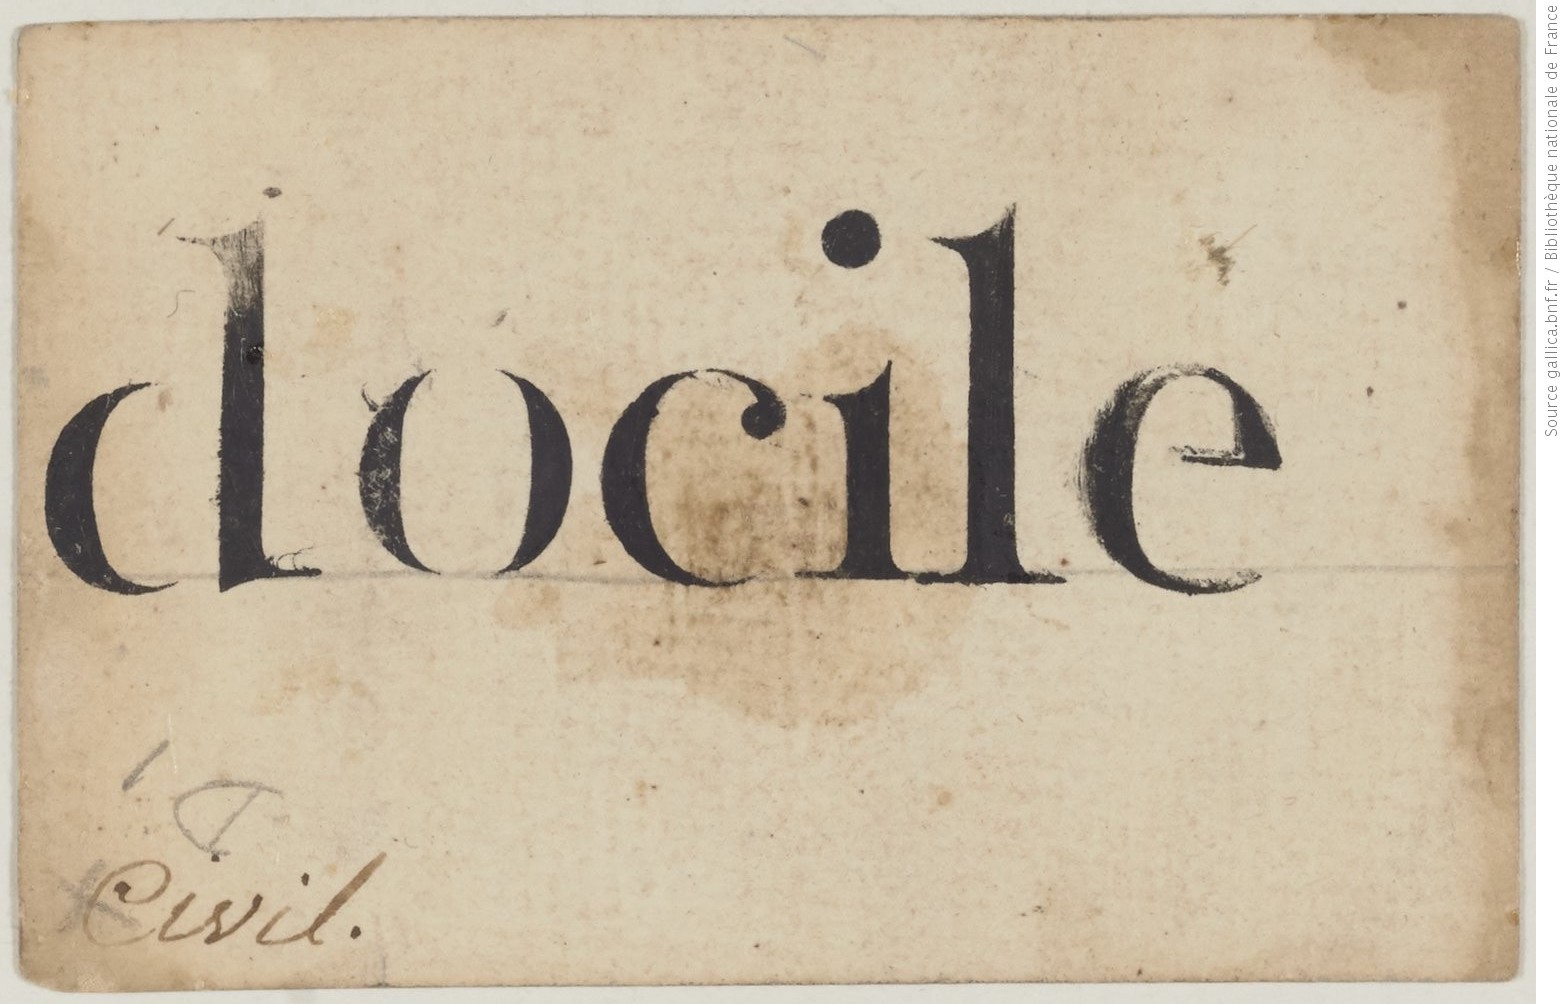 docile
Civil.
Source gallica.bnf.fr / Bibliothèque nationale de France